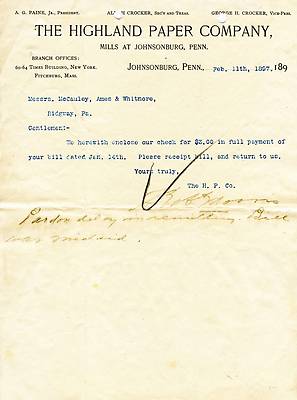 A. G. PAINE, Jr., President. ALVAH CROCKER, Sec'y and Treas. GEORGE H. CROCKER, Vice-Pres.
THE HIGHLAND PAPER COMPANY,
MILLS AT JOHNSONBURG, PENN.
BRANCH OFFICES:
60-64 Times Building, New York.
Fitchburg, Mass.
Johnsonburg, Penn. Feb. 11th, 1897. 189
Messrs. McCauley, Ames & Whitmore,
Ridgway, Pa.
Gentlemen:-
We herewith enclose our check for $2.00 in full payment of
your bill dated Jan. 14th. Please receipt bill, and return to us.
Yours truly,
The H. P. Co.
Pardon delay in remitting. Bill
was mislaid.